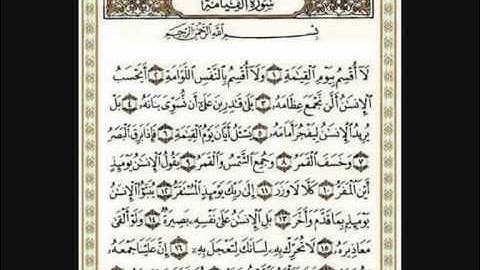 سورة القيامة
بِسْمِ اللَّهِ الرَّحْمَٰنِ الرَّحِيمِ
لَا أُقْسِمُ بِيَوْمِ الْقِيَامَةِ ١ وَلَا أُقْسِمُ بِالنَّفْسِ اللَّوَّامَةِ ٢ أَيَحْسَبُ
الْإِنسَانُ أَلَّن نَّجْمَعَ عِظَامَهُ ٣ بَلَىٰ قَادِرِينَ عَلَىٰ أَن نُّسَوِّيَ بَنَانَهُ ٤ بَلْ
يُرِيدُ الْإِنسَانُ لِيَفْجُرَ أَمَامَهُ ٥ يَسْأَلُ أَيَّانَ يَوْمُ الْقِيَامَةِ ٦ فَإِذَا بَرِقَ الْبَصَرُ
٧ وَخَسَفَ الْقَمَرُ ٨ وَجُمِعَ الشَّمْسُ وَالْقَمَرُ ٩ يَقُولُ الْإِنسَانُ يَوْمَئِذٍ
أَيْنَ الْمَفَرُّ ١٠ كَلَّا لَا وَزَرَ ١١ إِلَىٰ رَبِّكَ يَوْمَئِذٍ الْمُسْتَقَرُّ ١٢ يُنَبَّأُ الْإِنسَانُ
يَوْمَئِذٍ بِمَا قَدَّمَ وَأَخَّرَ ١٣ بَلِ الْإِنسَانُ عَلَىٰ نَفْسِهِ بَصِيرَةٌ ١٤ وَلَوْ أَلْقَىٰ
مَعَاذِيرَهُ ١٥ لَا تُحَرِّكْ بِهِ لِسَانَكَ لِتَعْجَلَ بِهِ ١٦ إِنَّ عَلَيْنَا جَمْعَهُ